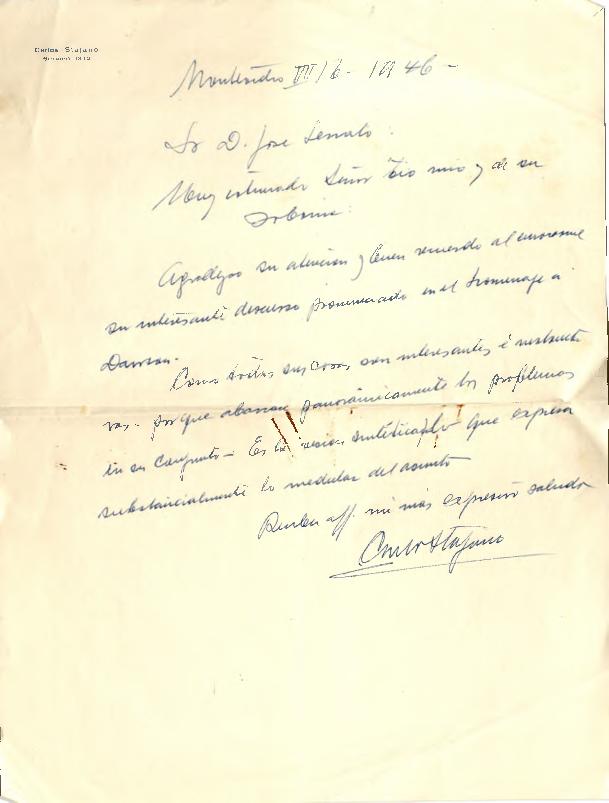 Carlos Stajano
Montevideo VII/6 - 1946 -
Sr D. José Serrato :
Muy estimado Señor tio mio y de su
Agradezco su atencion y buen recuerdo al enviarme
su interesante discurso pronunciado en el homenaje a
Como todas sus cosas son interesantes é instructi
vas - porque abarcan panorámicamente los problemas
en su conjunto - Es la vision que expresa
substancialmente lo medular del asunto
Reciba aff. mi más expresivo saludo
Carlos Stajano